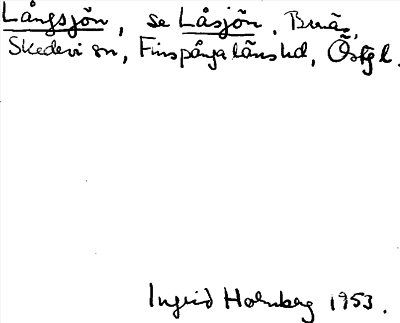 Långsjön, se Låsjön, Brenäs,
Skedevi sn, Finspånga läns hd, Östgl.
Ingrid Holmberg 1953.